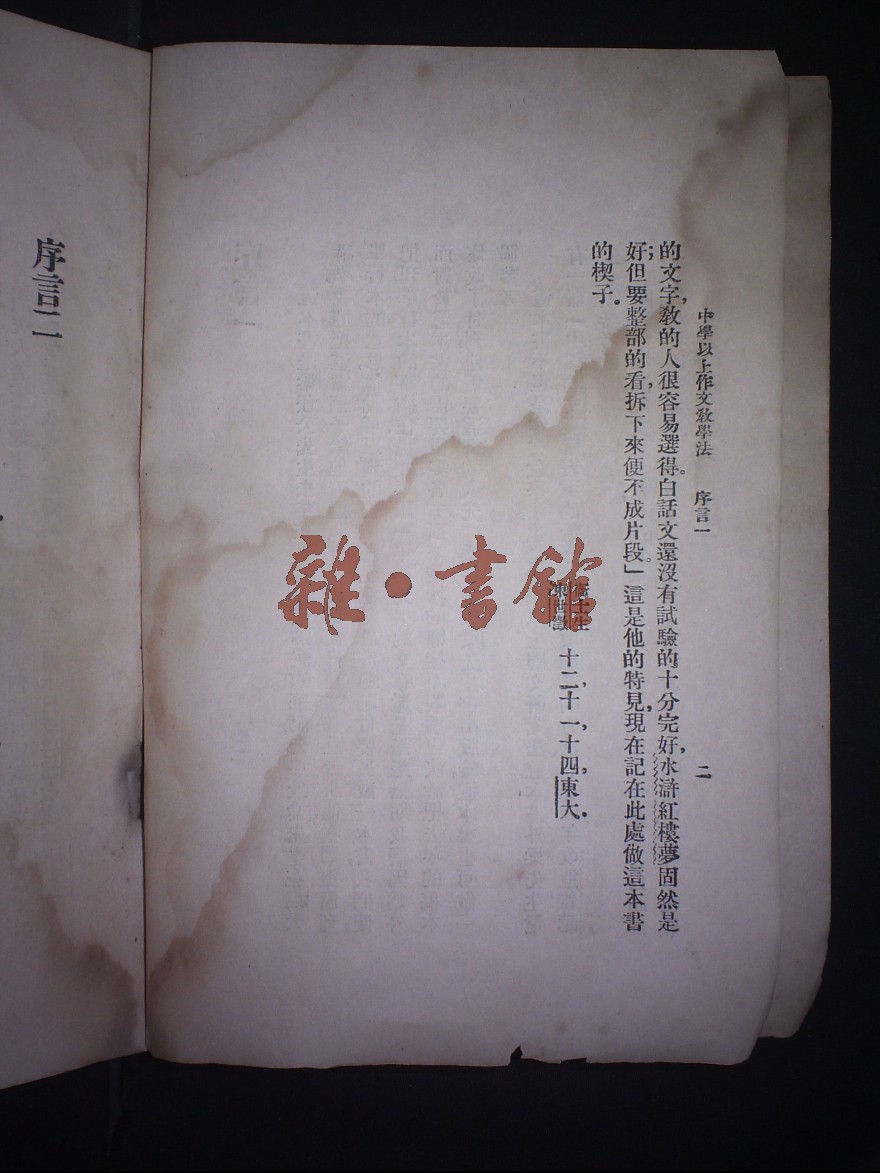 中學以上作文教學法　序言一　二
的文字，教的人很容易選得。白話文還沒有試驗的十分完好，水滸紅樓夢固然是
好；但要整部的看，拆下來便不成片段。」這是他的特見，現在記在此處做這本書
的楔子。
衛士生
束世澂
十二，十一，十四，東大．
序言二
雜·書館